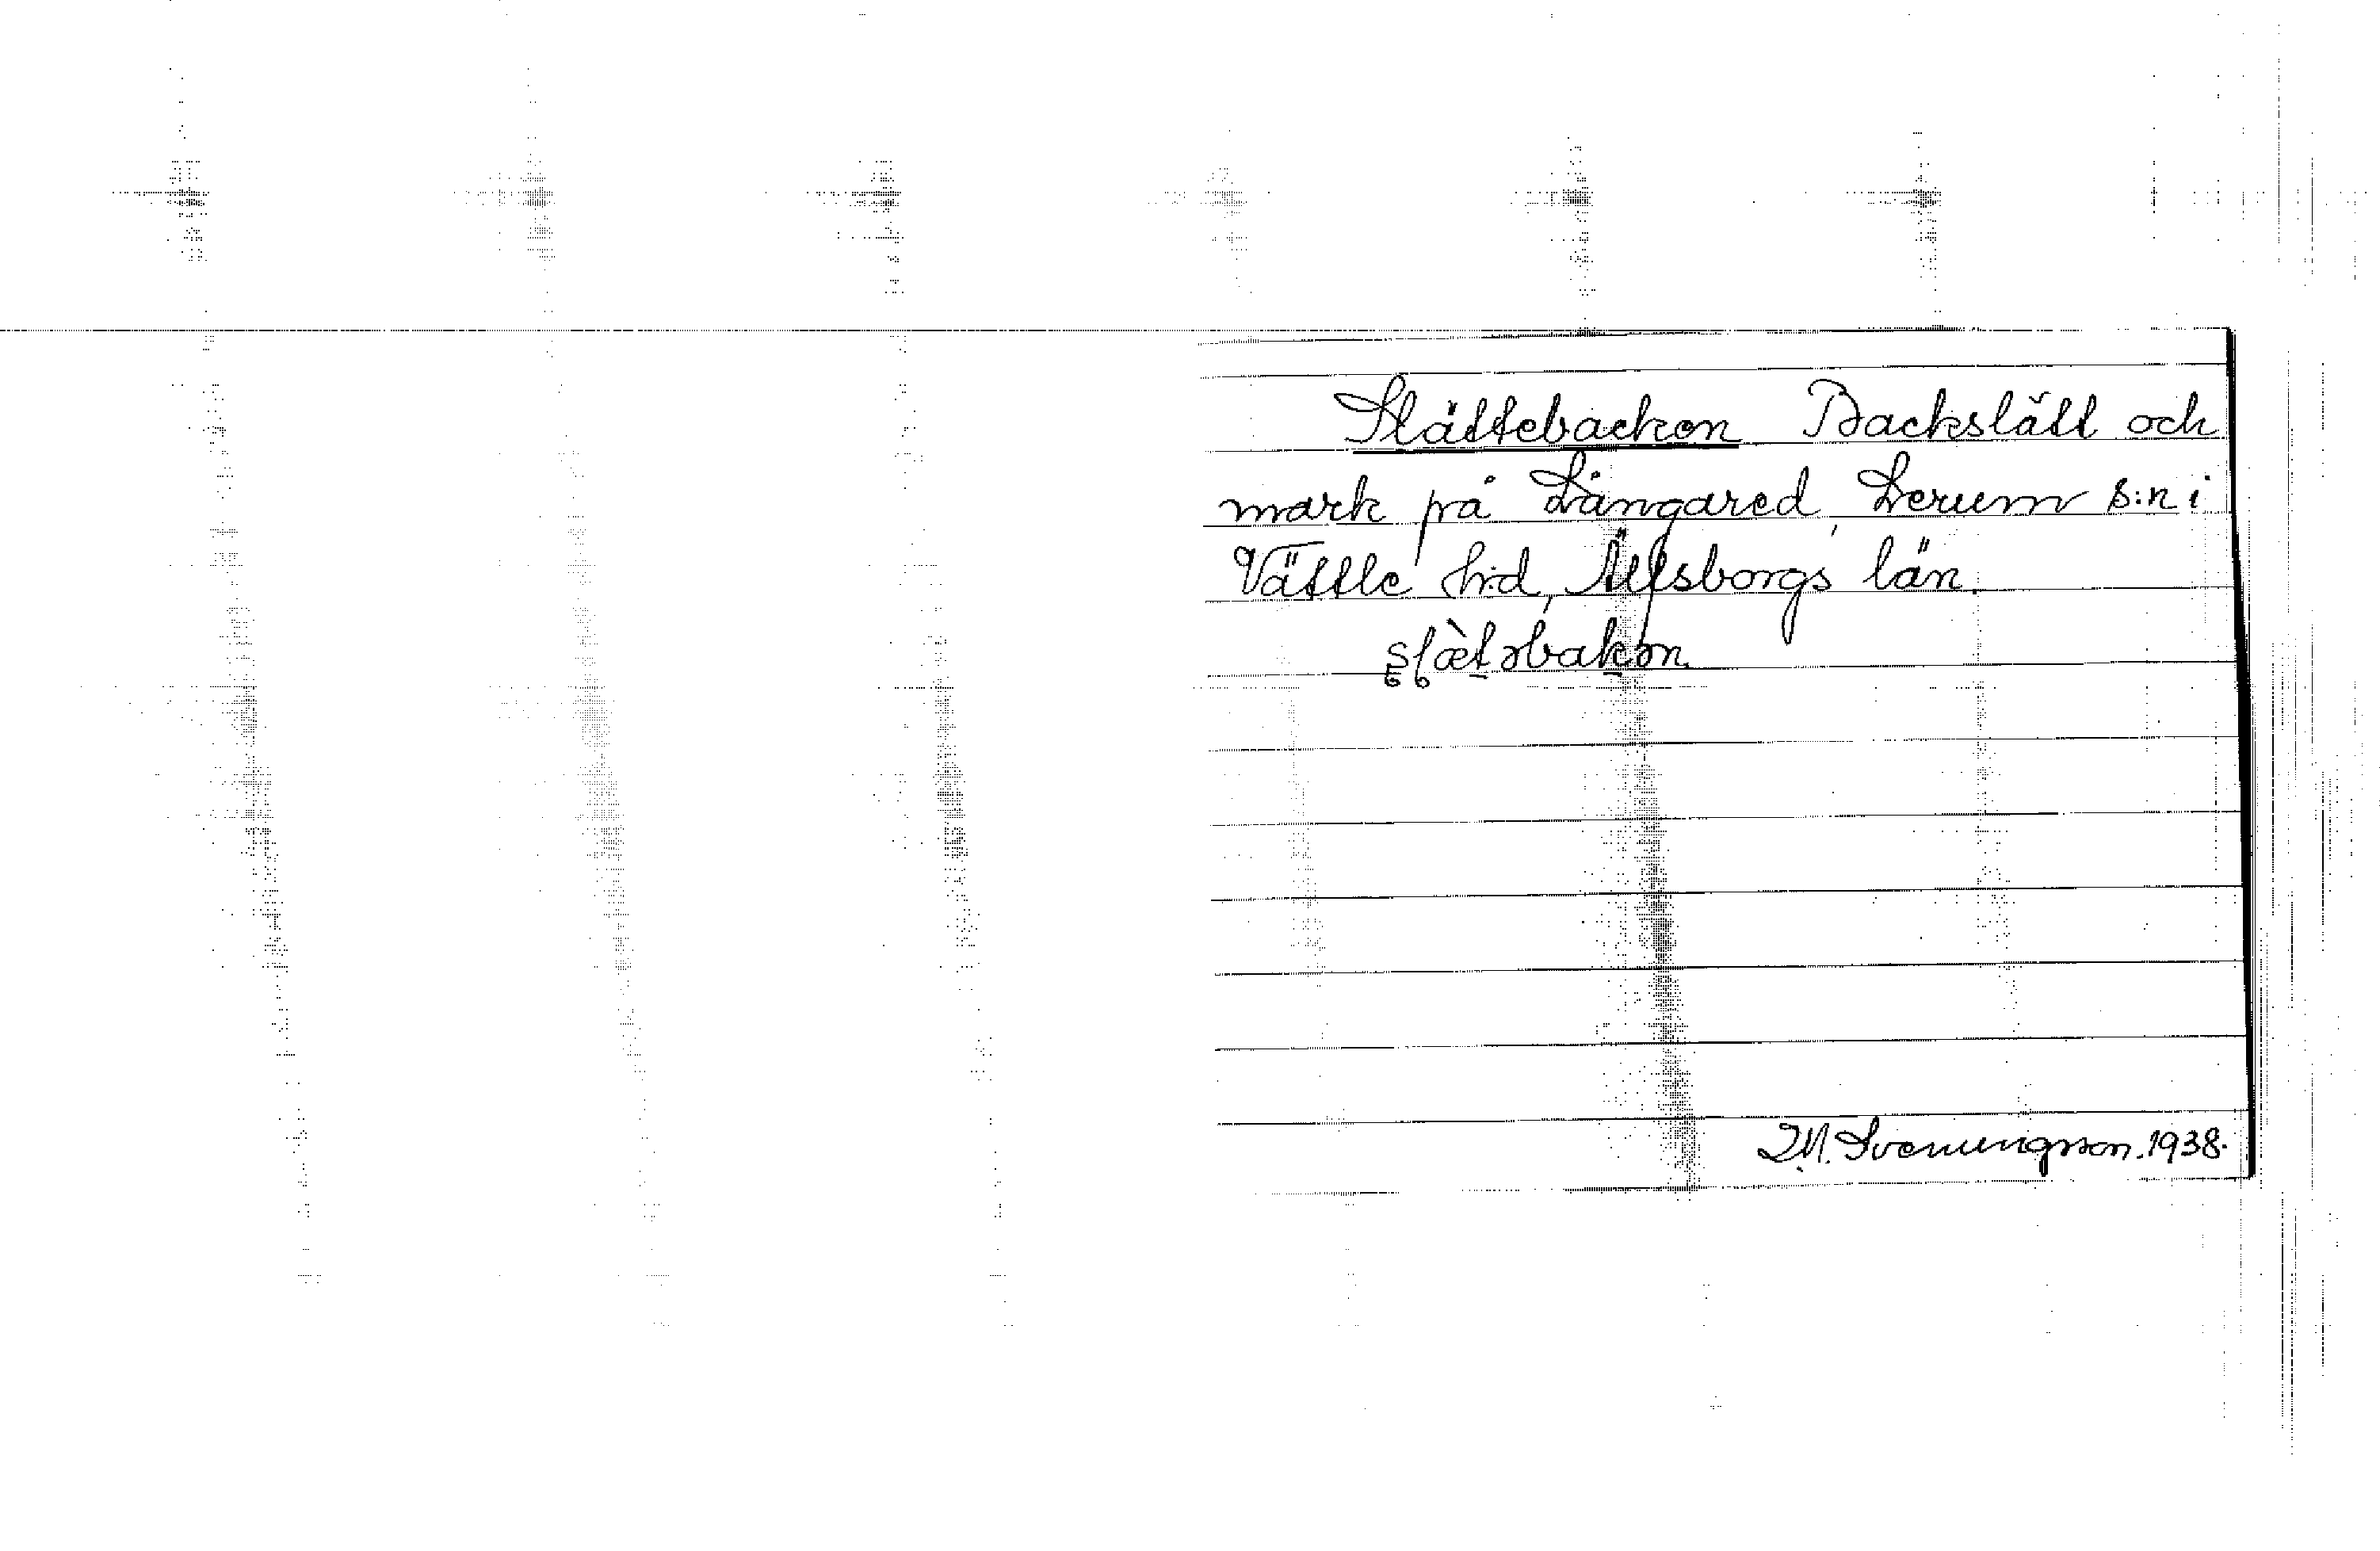 Slättebacken Backslätt och
mark på Långared, Lerum s:n i
Vättle h:d, Älfsborgs län.
slætəbakən
M. Svenungsson. 1938.